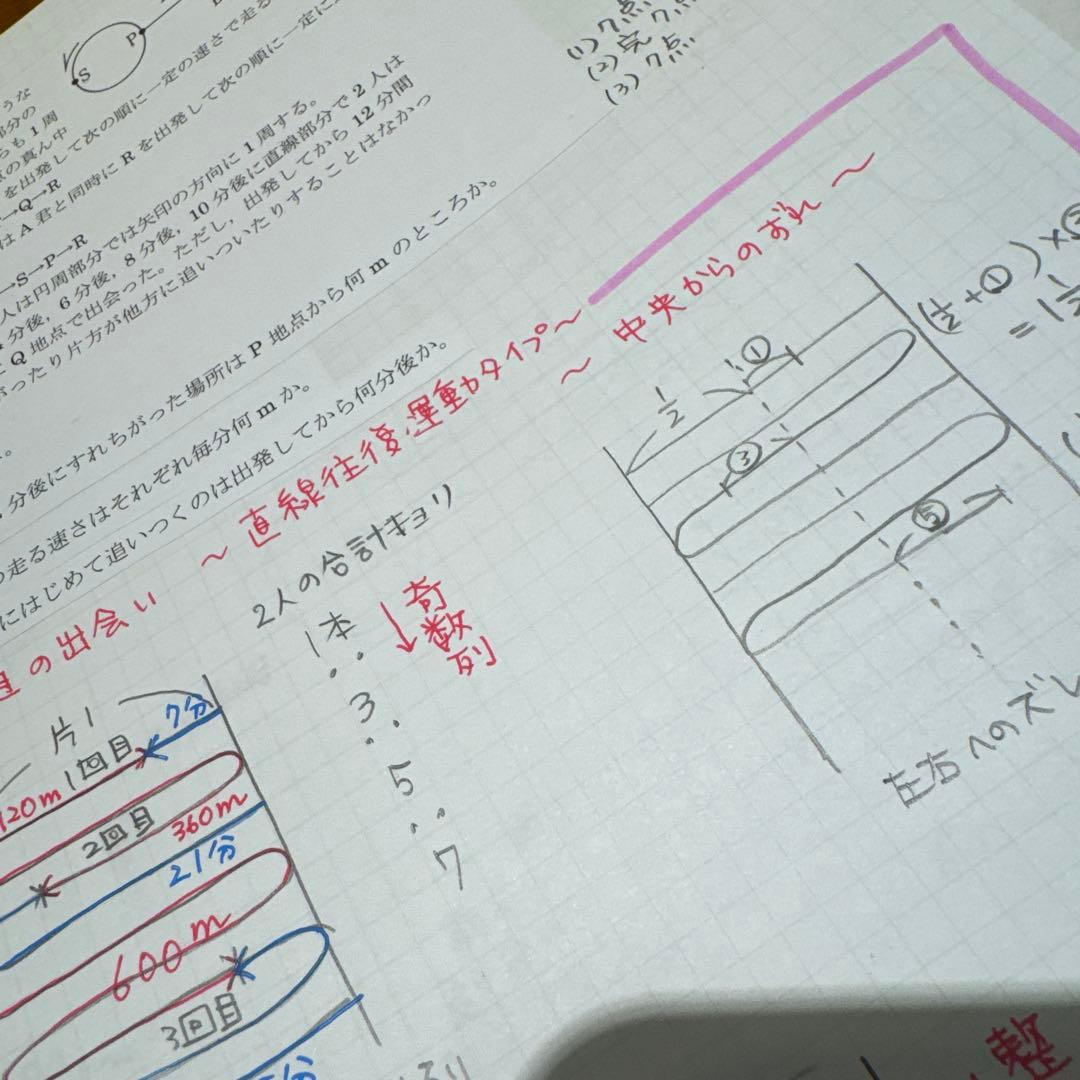 P
S
うな
部分の
らも1周
点の真ん中
を出発して次の順に一定の速さで走る
→Q→R
はA君と同時にRを出発して次の順に一定に
→S→P→R
人は円周部分では矢印の方向に1周する。
分後，6分後，8分後，10分後に直線部分で2人は
Q地点で出会った。ただし，出発してから12分間
がったり片方が他方に追いついたりすることはなかっ
分後にすれちがった場所はP地点から何mのところか。
走る速さはそれぞれ毎分何mか。
にはじめて追いつくのは出発してから何分後か。
(1) 7点
(2) 完 7点
(3) 7点
〜直線往復運動タイプ〜
の出会い
2人の合計キョリ
1本
3
5
7
奇数列
片1
7分
1回目
120m
2回目
360m
21分
600m
3回目
分
〜中央からのずれ〜
1/2
①
③
⑤
(1/2+①)×
=1
左右へのズレ
整